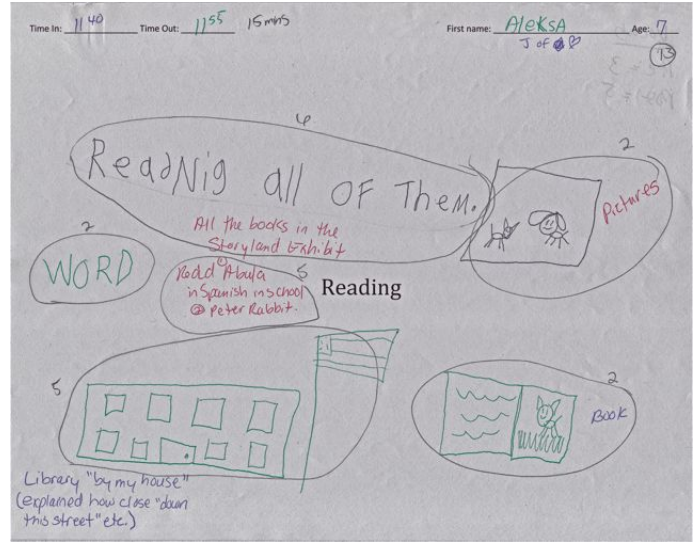 Time In: 11 40 Time Out: 11 55 15 mins First name: AleksA Age: 7
J of
13
6
ReadNig all OF Them.
All the books in the
Storyland Exhibit
2
Pictures
2
WORD
5
Read Abula
in Spanish in school
Peter Rabbit.
Reading
5
2
BOOK
Library "by my house"
(explained how close "down
this street" etc.)